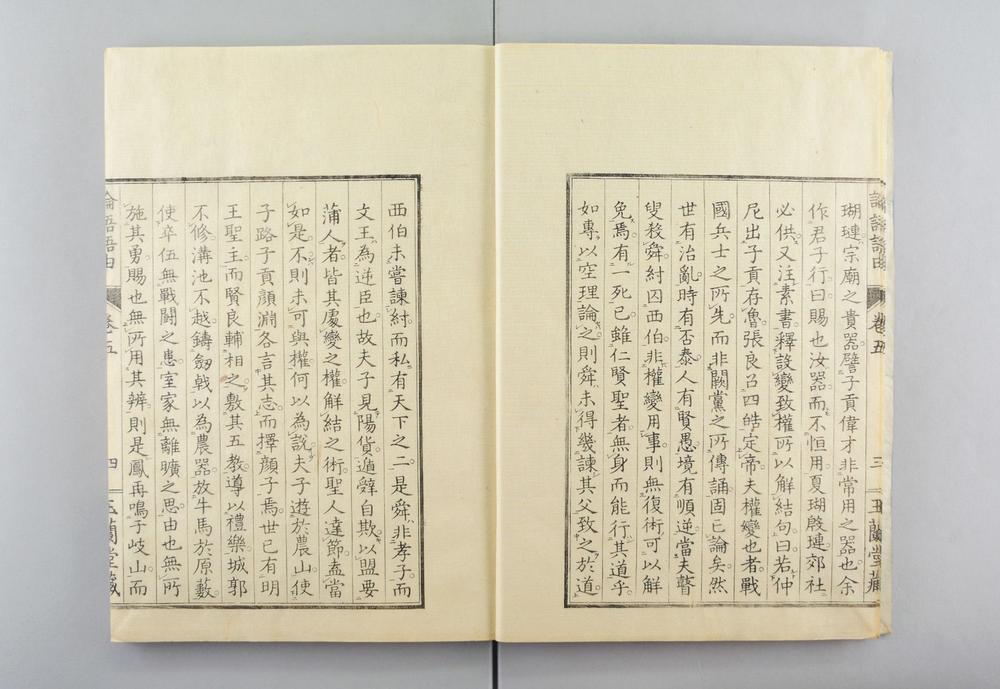 瑚璉宗廟之貴器譬子貢偉才非常用之器也余
作君子行曰賜也汝器而不恒用夏瑚殷璉郊社
必供又注素書釋設變致權所以解結句曰若仲
尼出子貢存魯張良召四皓定帝夫權變也者戰
國兵士之所先而非闕黨之所傳誦固已論矣然
世有治亂時有否泰人有賢愚境有順逆當夫瞽
叟殺舜紂囚西伯非權變用事則無復術可以解
免焉有一死已雖仁賢聖者無身而能行其道乎
如專以空理論之則舜未得幾諫其父致之於道
論語語由
卷五
三
玉蘭堂藏
西伯未嘗諫紂而私有天下之二是舜非孝子而
文王為逆臣也故夫子見陽貨遁辭自欺以盟要
蒲人者皆其處變之權解結之術聖人達節盍當
如是不則未可與權何以為說夫子遊於農山使
子路子貢顏淵各言其志而擇顏子焉世已有明
王聖主而賢良輔相之敷其五教導以禮樂城郭
不修溝池不越鑄劔戟以為農器放牛馬於原藪
使卒伍無戰鬪之患室家無離曠之思由也無所
施其勇賜也無所用其辨則是鳳再鳴于岐山而
論語語由
卷五
四
玉蘭堂藏